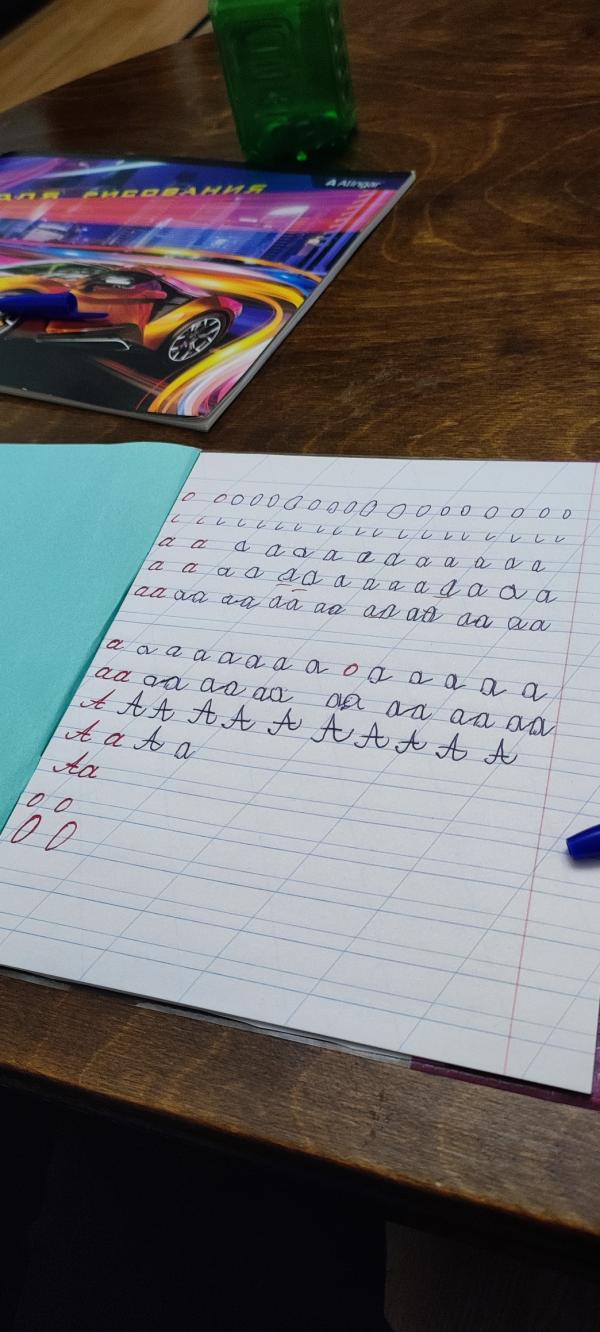 ДЛЯ РИСОВАНИЯ
Alingar
о о о о о о о о о о о о о о о о о о
а а а а а а а а а а а а а
а а а а а а а а а а а а а а
аа аа аа аа аа аа аа аа аа
а а а а а а а а о а а а а а
аа аа аа аа аа аа аа аа
А А А А А А А А А А А
А а А а
Аа
о о
О О